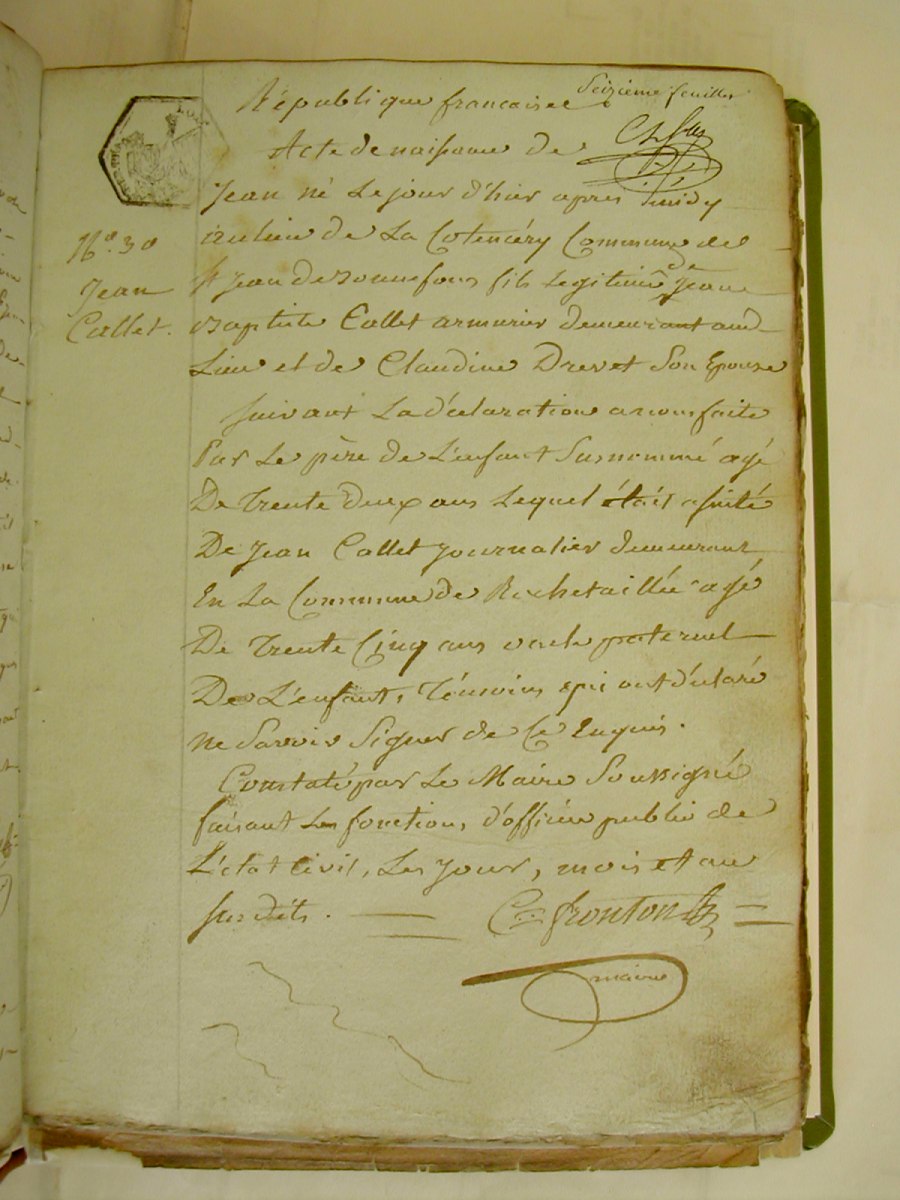 Seizieme feuillet
République francaise
Acte de naissance de
Jean né Le jour d'hier apres midy
N.º 30
Jean
Collet.
au lieu de La Cotencéry Commune de
St Jean de Bonnefons fils Legitime de Jean
Baptiste Collet armurier demeurant aud
Lieu et de Claudine Drevet Son Epouse
suivant La déclaration a nous faite
Par Le père de L'enfant Susnommé agé
De Trente deux ans Lequel était assisté
De Jean Collet Journalier demeurant
En La Commune de Rochetaillée agé
De Trente Cinq ans oncle paternel
De L'enfant, Témoins qui ont déclaré
Ne Savoir Signer de Ce Enquis.
Constaté par Le Maire Soussigné
faisant Les fonctions d'officier public de
L'état Civil, Les Jour, mois et an
sus dits.
fronton
maire